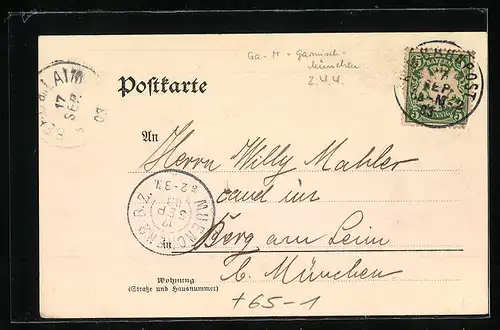 Ga-M = Garmisch-
München
2.4.4.
LAIM
17
SEP
03
BAHNPOST
17
SEP.
BAYERN
5 5
PFENNIG
Postkarte
An
Herrn Willy Mahler
cand iur
MUENCHEN 2 B.Z.
2-3 N.
17
SEP
03
in Berg am Leim
b. München
Wohnung
(Straße und Hausnummer)
+65-1